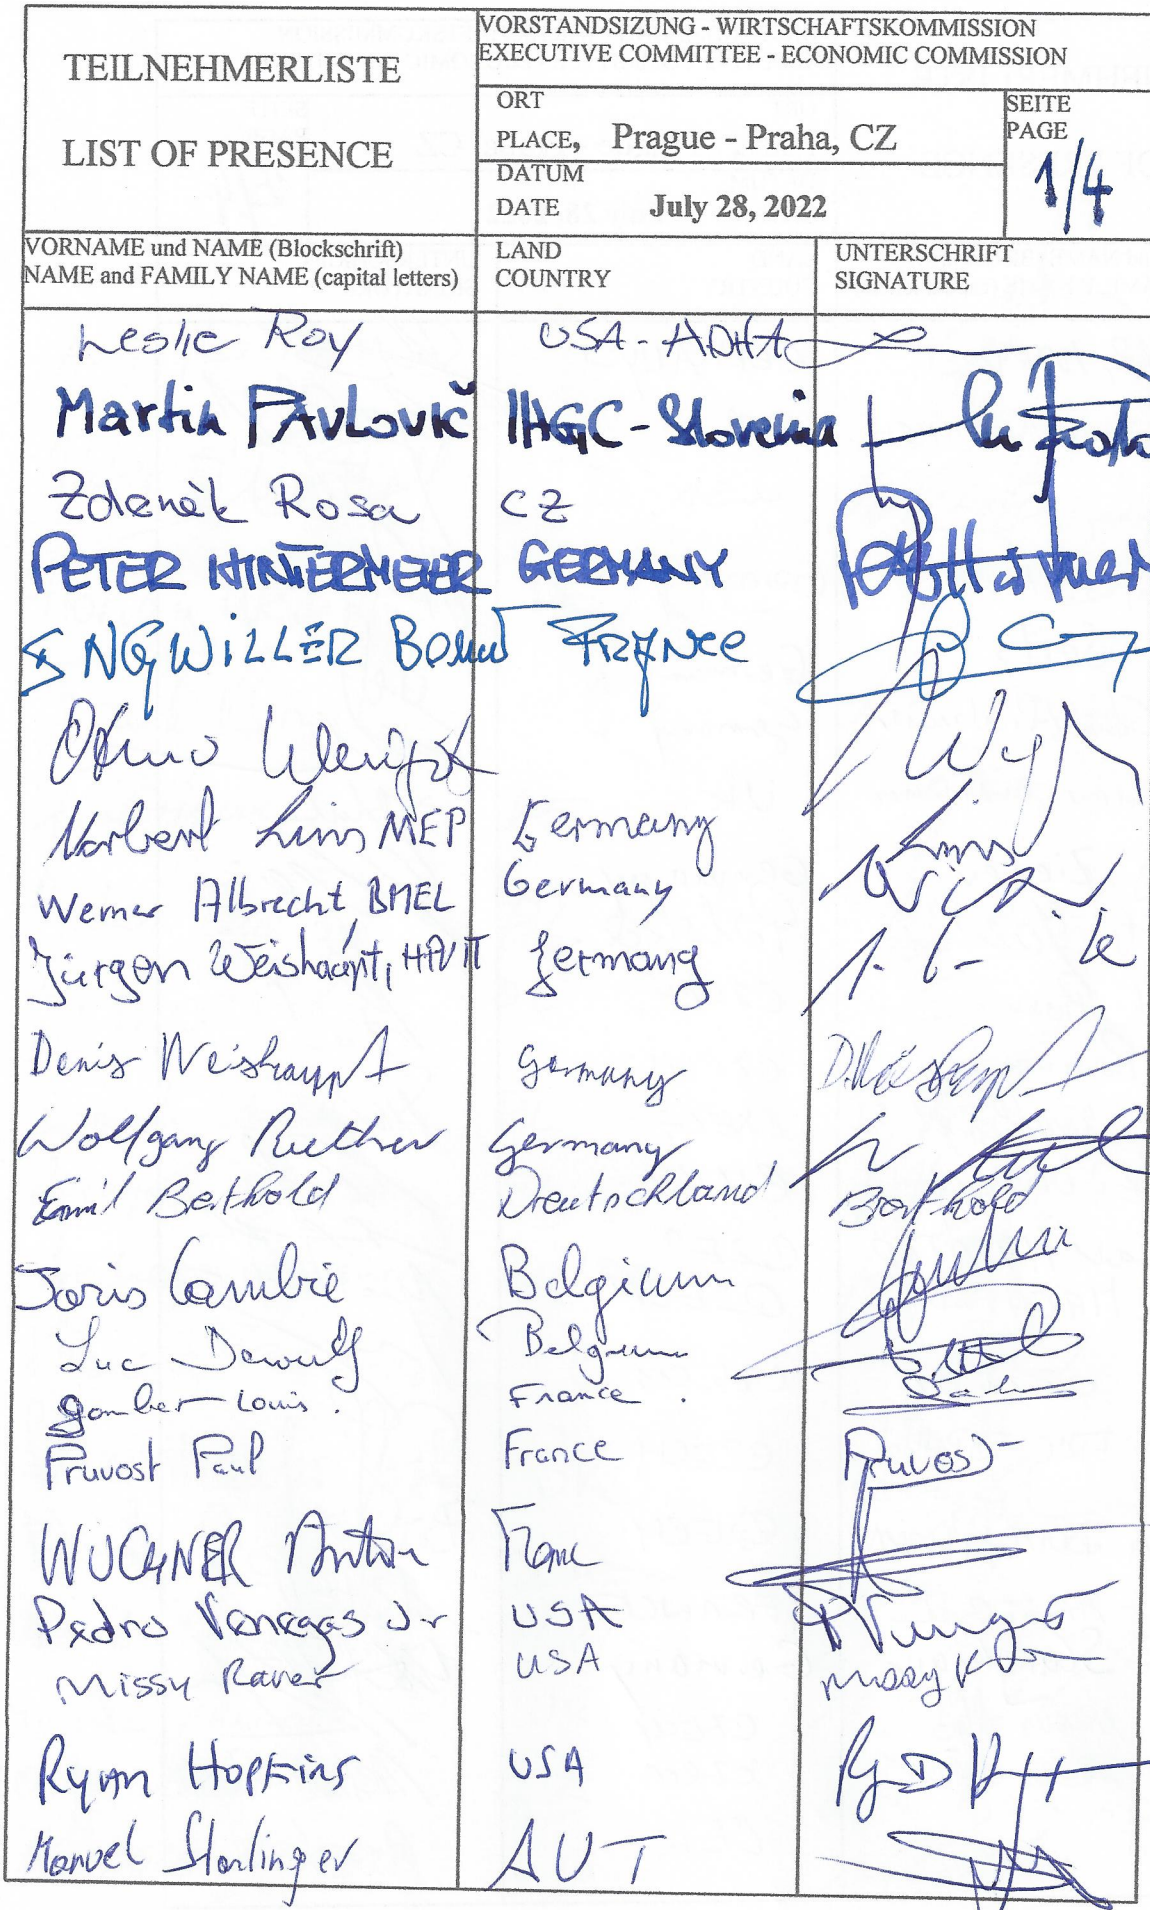 TEILNEHMERLISTE
LIST OF PRESENCE
VORSTANDSIZUNG - WIRTSCHAFTSKOMMISSION
EXECUTIVE COMMITTEE - ECONOMIC COMMISSION
ORT
PLACE, Prague - Praha, CZ
DATUM
DATE July 28, 2022
SEITE
PAGE
1/4
VORNAME und NAME (Blockschrift)
NAME and FAMILY NAME (capital letters)
LAND
COUNTRY
UNTERSCHRIFT
SIGNATURE
Leslie Roy USA - ADHA
Martin PAVLOVIČ IHGC - Slovenia
Zdeněk Rosa CZ
PETER HINTERMEIER GERMANY
ENGWILLER Bernd FRANCE
Otmar
Norbert Lins MEP Germany Lins
Werner Albrecht, BMEL Germany
Jürgen Weishaupt, HVT Germany
Denis Weishaupt Germany D. Weishaupt
Wolfgang Ruether Germany
Emil Berthold Deutschland Berthold
Joris Cambie Belgium
Luc Dewulf Belgium
Gomber Louis. France.
Pruvost Paul France Pruvost
WUCHNER Anton
Pedro Venegas Jr USA
Missy Raver USA Missy
Ryan Hopkins USA
Manuel Starlinger AUT